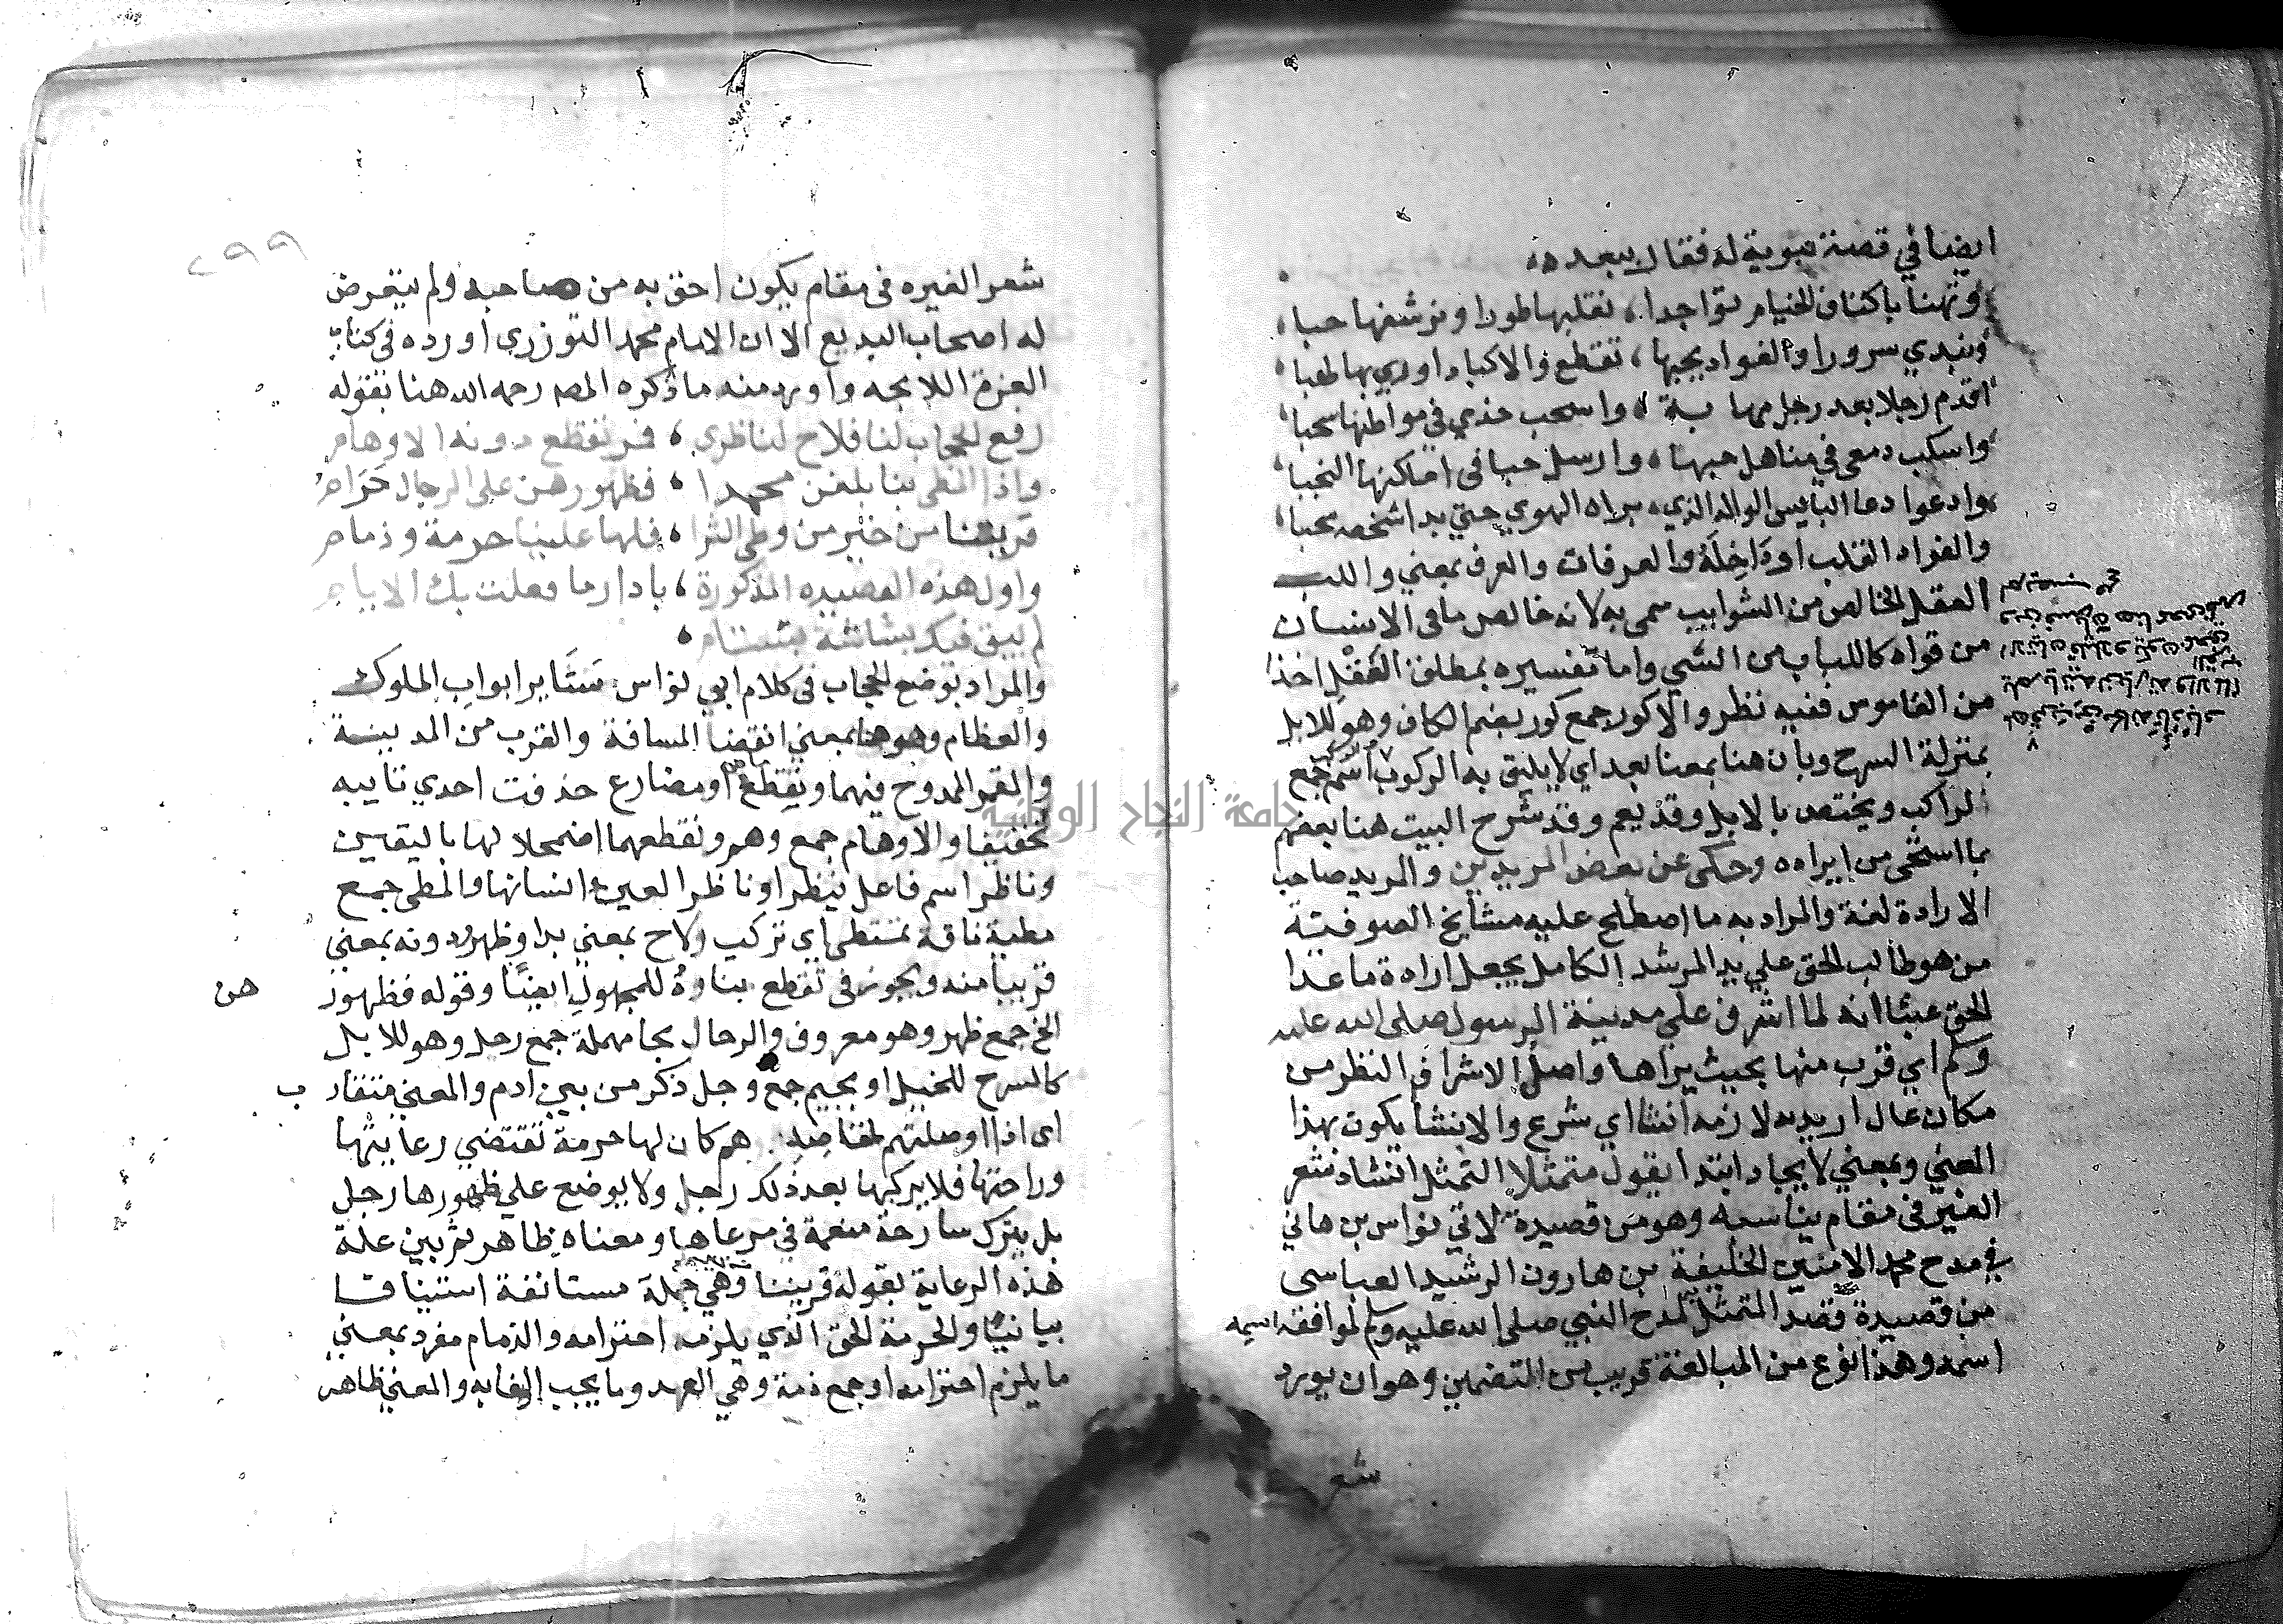 ايضا في قصة نبوية له فقال بعده
وتهنا باكناف الخيام تواجدا، نقلبها طورا ونرشفها حبا،
ونبدي سرورا والفواد بحبها، تقطع والاكباد اوري بها لهبا
اقدم رجلا بعد رجل مهابة، واسحب خدي في مواطنها سحبا،
واسكب دمعي في مناهل حبها، وارسل حبا في اماكنها النجبا
وادعوا دعا البايس الواله الذي، براه الهوي حتي بدا شخصه نحبا
والفواد القلب او داخله والعرفات والعرف بمعني واللب
العقل الخالص من الشوايب سمى به لانه خالص ما في الانسان
من قواه كاللباب من الشي واما تفسيره بمطلق العقل اخذا
من القاموس ففيه نظر والاكور جمع كور بضم الكاف وهو للابل
بمنزلة السرج وبان هنا بمعنا بعد اي لا يليق به الركوب اسم جمع
الراكب ويختص بالابل وقد يعم وقد شرح البيت هنا بعضهم
بما استحى من ايراده وحكى عن بعض المريدين والمريد صاحب
الارادة لغة والمراد به ما اصطلح عليه مشايخ الصوفية
من هو طالب الحق علي يد المرشد الكامل يجعل ارادة ما عدا
الحق عبثا انه لما اشرف علي مدينة الرسول صلى الله عليه
وسلم اي قرب منها بحيث يراها واصل الاشراف النظر من
مكان عال اريد به لازمه انشا اي شرع والانشا يكون بهذا
المعني وبمعني لايجاد ابتدا يقول متمثلا التمثل انشاد شعر
الغير في مقام يناسبه وهو من قصيدة لابي نواس بن هاني
في مدح محمد الامين الخليفة بن هارون الرشيد العباسى
من قصيدة قصد المتمثل لمدح النبي صلى الله عليه وسلم لموافقة اسمه
اسمه وهذا نوع من المبالغة غريب من التضمين وهو ان يورد
شعر
٢٩٩
شعر الغيره في مقام يكون احق به من صاحبه ولم يتعرض
له اصحاب البديع الا ان الامام محمد التوزري اورده في كتابه
الغرة اللايحه واورد منه ما ذكره المصـ رحمه الله هنا بقوله
رفع الحجاب لنا فلاح لناظري، قمر تقطع دونه الاوهام
واذا المطى بنا بلغن محمدا، فظهورهن على الرجال حرام
قربننا من خير من وطى الثرا، فلها علينا حرمة وذمام
واول هذه القصيده المذكورة، يا دار ما فعلت بك الايام
لم يبق فيك بشاشة بتستام،
والمراد بوضع الحجاب في كلام ابي نواس ستاير ابواب الملوك
والعظام وهو هنا بمعني انقضا المسافة والقرب من المدينة
والقمر الممدوح فيهما وتقطع او مضارع حذفت احدي تاييه
تخفيفا والاوهام جمع وهم وتقطعهما اضمحلالها باليقين
وناظر اسم فاعل ينظر او ناظر العين انسانها والمطى جمع
مطية ناقة تمتطى اي تركب ولاح بمعني بدا وظهر ودونه بمعني
قريبا منه ويجوز في تقطع بناوه للمجهول ايضا وقوله فظهور هن
الخ جمع ظهر وهو معروف والرحال بحا مهملة جمع رحل وهو للابل
كالسرج للخيل او بجيم جمع رجل ذكر من بين ادم والمعني متقارب
اى اذا اوصلتهم لمقاصدهم كان لها حرمة تقتضي رعايتها
وراحتها فلا يركبها بعد ذلك رجل ولا يوضع علي ظهورها رحل
بل يترك سارحة منعمة في مرعاها ومعناه ظاهر ثم بين علة
هذه الرعاية بقوله قربننا وهي جملة مستانفة استينافا
بيانيا والحرمة الحق الذي يلزمه احترامه والذمام مفرد بمعني
ما يلزم احترامه او جمع ذمة وهي العهد وما يجب ايفايه والمعني ظاهر
جامعة النجاح الوطنية